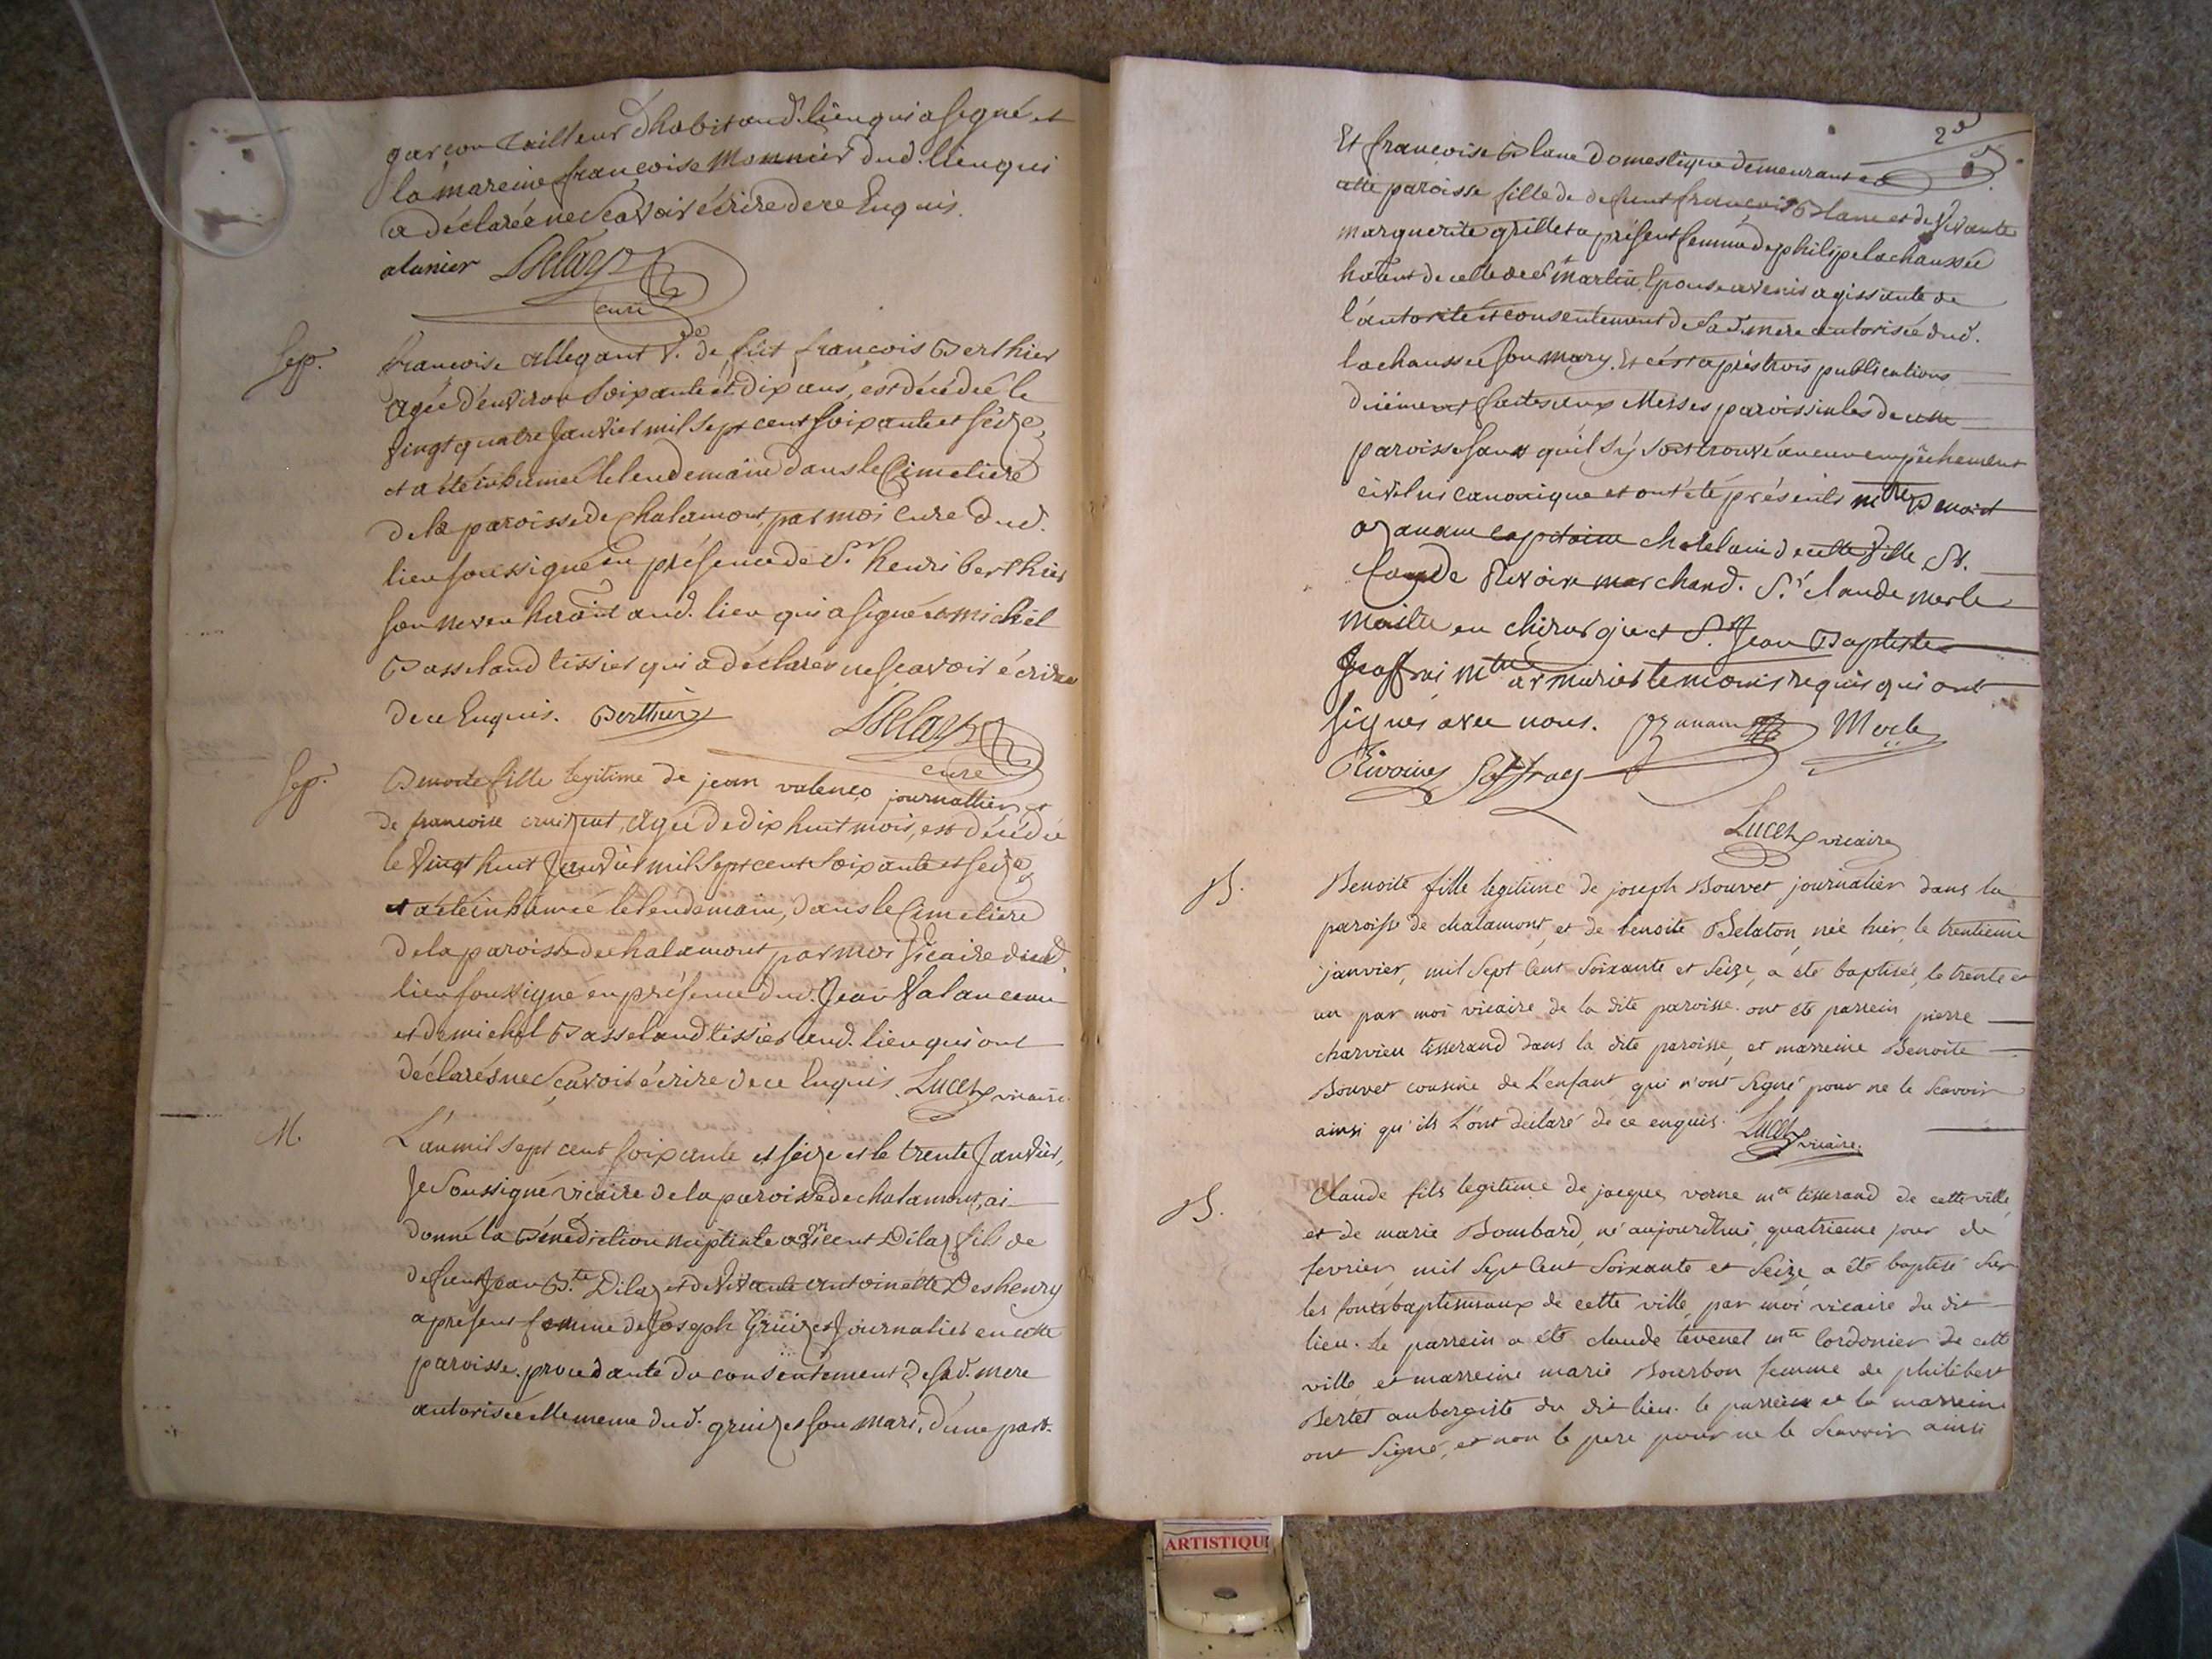 garcon tailleur d'habit aud. lieu qui a signé et
la mareine françoise Monnier dud. lieu qui
a déclarée ne Scavoir écrire de ce Enquis.
alanier
curé
Sep.
françoise allegant v.ve de fût francois Berthier
agée d'environ Soixante et dix ans, est décédée le
vingt quatre Janvier mil Sept cent soixante et séize,
et a été inhumée le lendemain dans le Cimetiere
de la paroisse de chalamont, par moi Curé dud.
lieu soussigné en présence de S.r henri berthier
son neveu hâtant aud. lieu qui a signé et michel
Basseland tissier qui a déclaré ne scavoir écrire
de ce Enquis. Berthier
curé
Sep.
Benoite fille legitime de jean valenço journallier et
de francoise cruizent, agée de dix huit mois, est décédée
le vingt huit Janvier mil Sept cent Soixante et seize
et a été inhumée le lendemain, dans le Cimetiere
de la paroisse de chalamont par moi vicaire dud.
lieu soussigné en présence dud. Jean Valanceau
et de michel Basseland tissier aud. lieu qui ont
déclarés ne Scavoir écrire de ce Enquis. Lucet vicaire
M.
L'an mil Sept cent soixante et seize et le trente Janvier,
Je Soussigné vicaire de la paroisse de chalamont, ai
donné la Bénédiction nuptiale a vincent Dilaz fils de
defunt Jean B.te Dilaz et de vivante antoinette Deshenry
a présent femme de Joseph Gruizet Journalier en cette
paroisse. procedante du consentement de sad. mere
autorisée elle meme dud. gruizet son mari, d'une part.
2.d
Et françoise Blanc Domestique demeurant en
cette paroisse fille de defunt francois Blanc et de vivante
marguerite grillet a présent femme de philipe lachaussée
hâtant de celle de S.t martin Epouse a venir agissante de
l'autorité et consentement de Sad. mere autorisée dud.
lachaussée son mary. Et c'est après trois publications
düement faites aux Messes paroissiales de cette
paroisse sans qu'il s'y soit trouvé aucun empêchement
civil ni canonique et ont été présents m.tre Benoist
ozanam capitaine chatelain de cette ville S.r
Claude Rivoire marchand. S.r claude merle
maitre en chirurgie et S.r Jean Baptiste
Jeoffrai m.tre armurier temoins requis qui ont
signés avec nous. Ozanam Merle
Rivoire Jeoffray
Lucet vicaire
B.
Benoite fille legitime de joseph Bouvet journalier dans la
paroisse de chalamont, et de benoite Belaton, née hier, le trentieme
janvier, mil Sept Cent Soixante et Seize, a été baptisée, le trente et
un par moi vicaire de la dite paroisse. ont été parrein pierre
charvieu tisserand dans la dite paroisse, et marreine Benoite
Bouvet cousine de L'enfant qui n'ont Signé pour ne le Scavoir
ainsi qu'ils L'ont déclaré de ce enquis. Lucet vicaire.
B.
Claude fils legitime de jacque vorne m.tre tisserand de cette ville
et de marie Bombard, né aujourd'hui, quatrieme jour de
fevrier mil Sept Cent Soixante et Seize a été baptisé Sur
les fonts baptismaux de cette ville, par moi vicaire du dit
lieu. Le parrein a été claude tevenet m.tre Cordonier de cette
ville, et marreine marie Bourbon femme de philibert
Bertet aubergiste du dit lieu. le parrein et la marreine
ont Signé, et non le pere pour ne le Scavoir ainsi
ARTISTIQU